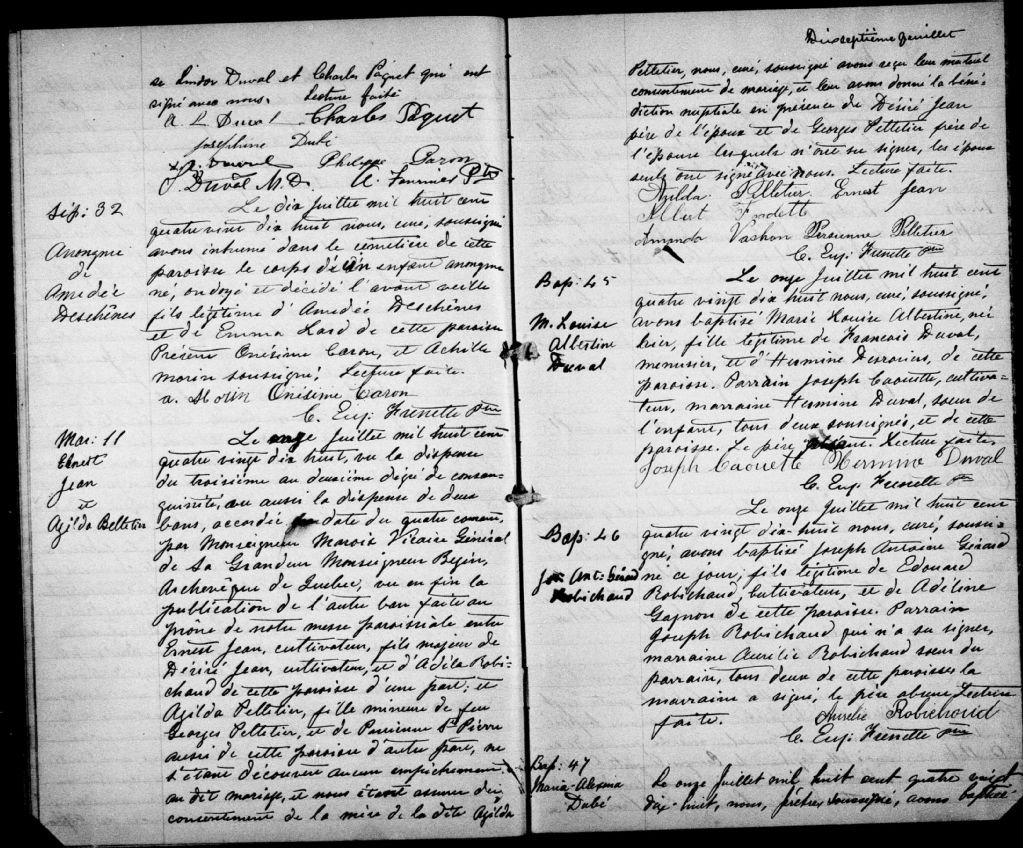 se Lindor Duval et Charles Paquet qui ont
signé avec nous. Lecture faite
A L Duval Charles Paquet
Josephine Dubé
Duval Philippe Caron
J. Duval M.D. A. Fournier Ptre
Sép: 32
Anonyme
de
Amédée
Deschênes
Le dix Juillet mil huit cent
quatre vingt dix huit nous, curé, soussigné
avons inhumé dans le cimetière de cette
paroisse le corps d'un enfant anonyme
né, ondoyé et décédé l'avant veille
fils légitime d'Amédée Deschênes
et de Emma Lord de cette paroisse
Présent Onésime Caron, et Achille
Morin soussigné. Lecture faite.
a. Morin Onésime Caron
C. Eug. Frenette ptre
Mar: 11
Ernest
Jean
et
Agilda Pelletier
Le onze Juillet mil huit cent
quatre vingt dix huit, vu la dispense
du troisième au deuxième degré de consan-
guinité, vu aussi la dispense de deux
bans, accordée date du quatre courant,
par Monseigneur Marois Vicaire Général
de Sa Grandeur Monseigneur Bégin,
Archevêque de Québec, vu en fin la
publication de l'autre ban faite au
prône de notre messe paroissiale entre
Ernest Jean, cultivateur, fils majeur de
Désiré Jean, cultivateur, et d'Adéla Robi-
chaud de cette paroisse d'une part; et
Agilda Pelletier, fille mineure de feu
Georges Pelletier, et de St Pierre
aussi de cette paroisse d'autre part, ne
s'étant découvert aucun empêchement
au dit mariage, et nous étant assuré du
consentement de la mère de la dite Agilda
Dixseptième feuillet
Pelletier, nous, curé, soussigné avons reçu leur mutuel
consentement de mariage, et leur avons donné la béné-
diction nuptiale en présence de Désiré Jean
père de l'époux et de Georges Pelletier frère de
l'épouse lesquels n'ont su signer, les époux
seuls ont signé avec nous. Lecture faite.
Agilda Pelletier Ernest Jean
Albert
Amanda Vachon Pelletier
C. Eug: Frenette ptre
Bap: 45
M. Louise
Albertine
Duval
Le onze Juillet mil huit cent
quatre vingt dix huit nous, curé, soussigné,
avons baptisé Marie Louise Albertine, née
hier, fille légitime de Francois Duval,
menusier, et d'Hermine Desrosiers, de cette
paroisse. Parrain Joseph Caouette, cultiva-
teur, marraine Hermine Duval, soeur de
l'enfant, tous deux soussignés, et de cette
paroisse. Le père absent. Lecture faite,
Joseph Caouette Hermine Duval
C. Eug. Frenette ptre
Bap: 46
Jos: Ant: Gérard
Robichaud
Le onze Juillet mil huit cent
quatre vingt dix-huit nous, curé, soussi-
gné, avons baptisé Joseph Antoine Gérard
né ce jour, fils légitime de Edouard
Robichaud, cultivateur, et de Adéline
Gagnon de cette paroisse. Parrain
Joseph Robichaud qui n'a su signer,
marraine Aurélie Robichaud soeur du
parrain, tous deux de cette paroisse, la
marraine a signé, le père absent, Lecture
faite. Aurelie Robichaud
C. Eug: Frenette ptre
Bap: 47
Maria-Alexina
Dubé
Le onze Juillet mil huit cent quatre vingt
dix-huit, nous, prêtre, soussigné, avons baptisé